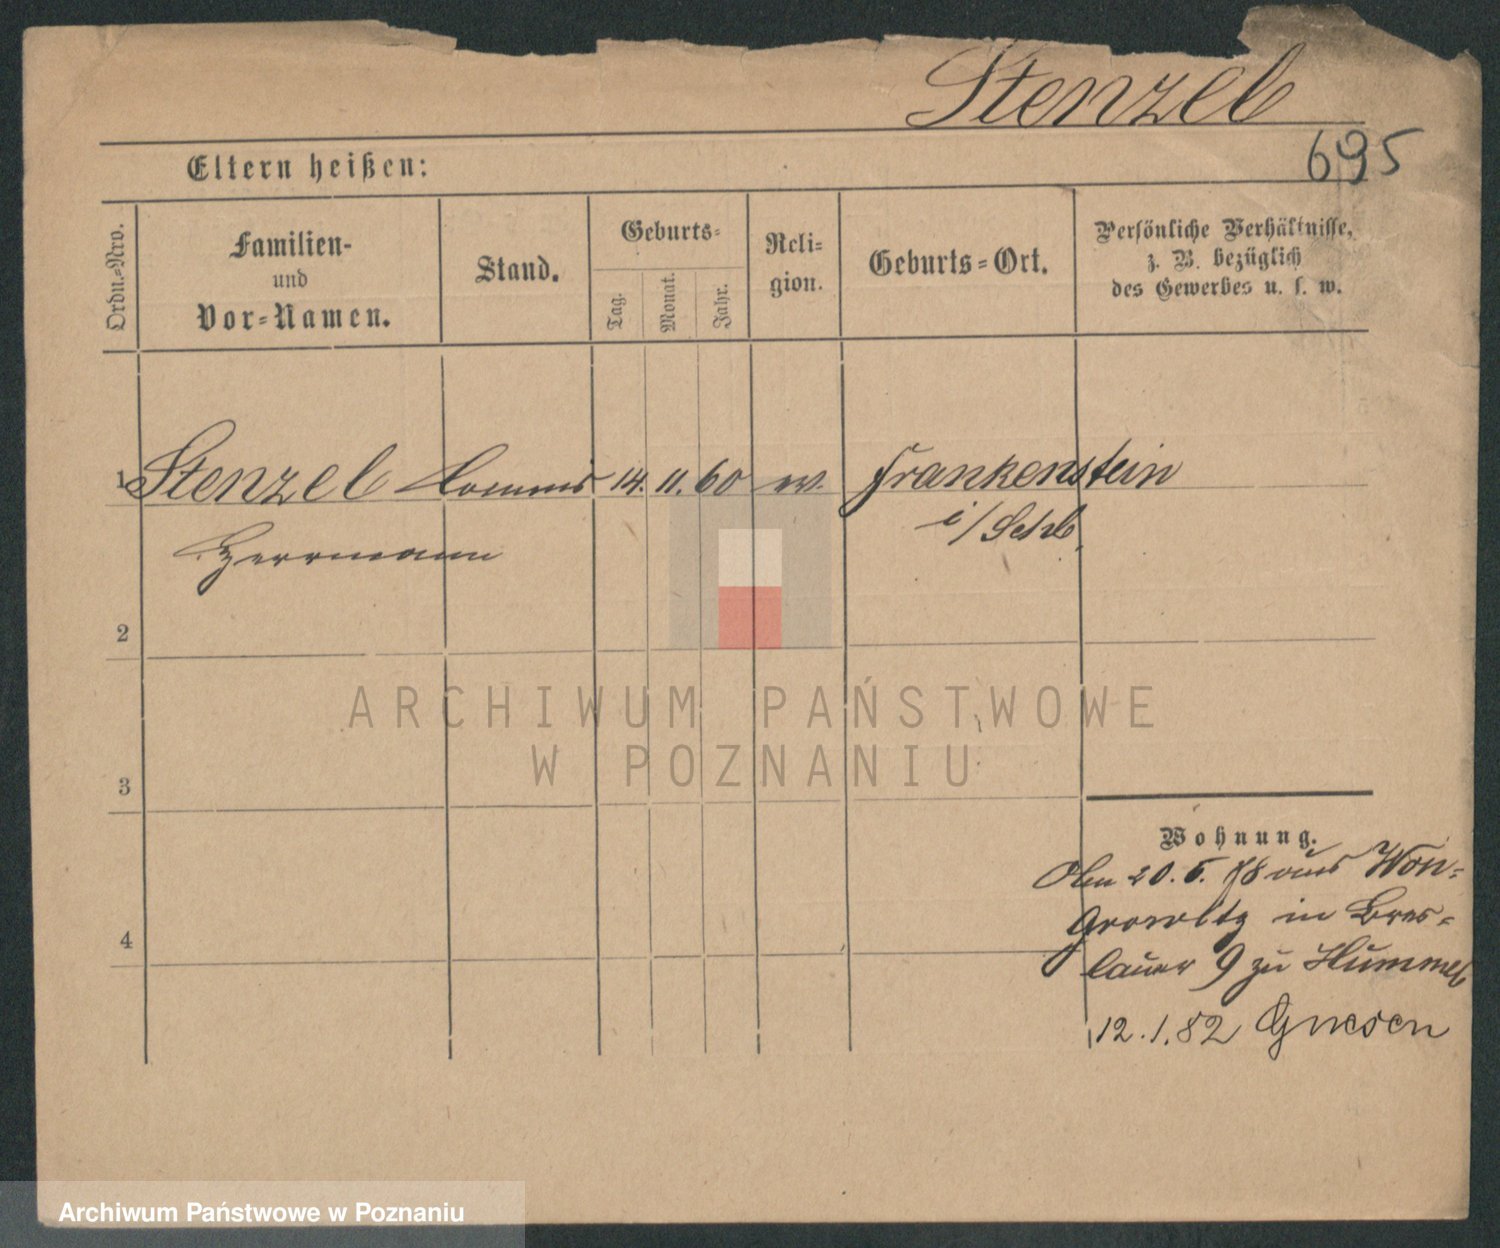 Stenzel
695
Eltern heißen:
Ordn.-Nro.
Familien-
und
Vor-Namen.
Stand.
Geburts-
Tag.
Monat.
Jahr.
Reli-
gion.
Geburts-Ort.
Persönliche Verhältnisse,
z. B. bezüglich
des Gewerbes u. s. w.
1 Stenzel Commis 14. 11. 60 ev. Frankenstein
Herrmann i/Schl.
2
3
4
Wohnung.
20. 5. 78 aus Won-
growitz in Bres-
lauer 9 zu Hummel
12.1.82 Gnesen
ARCHIWUM PAŃSTWOWE
W POZNANIU
Archiwum Państwowe w Poznaniu